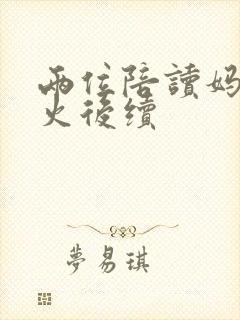 兩位陪讀媽
火後續
夢易琪